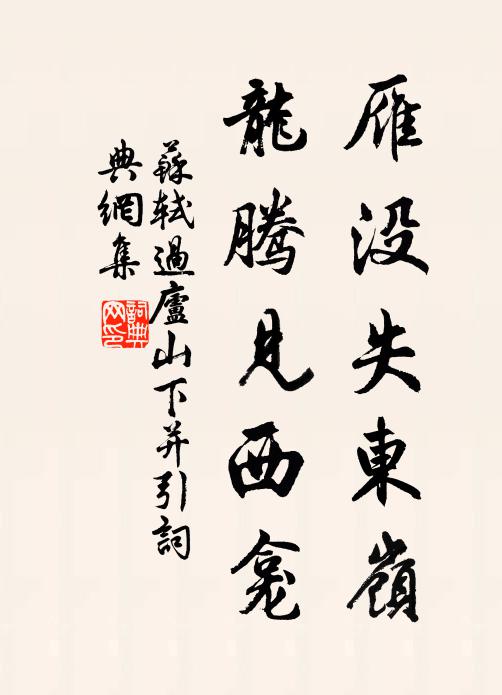 雁没失東嶺
龍騰見西龕
蘇軾過廬山下并引詞
典網集
詞典
网印